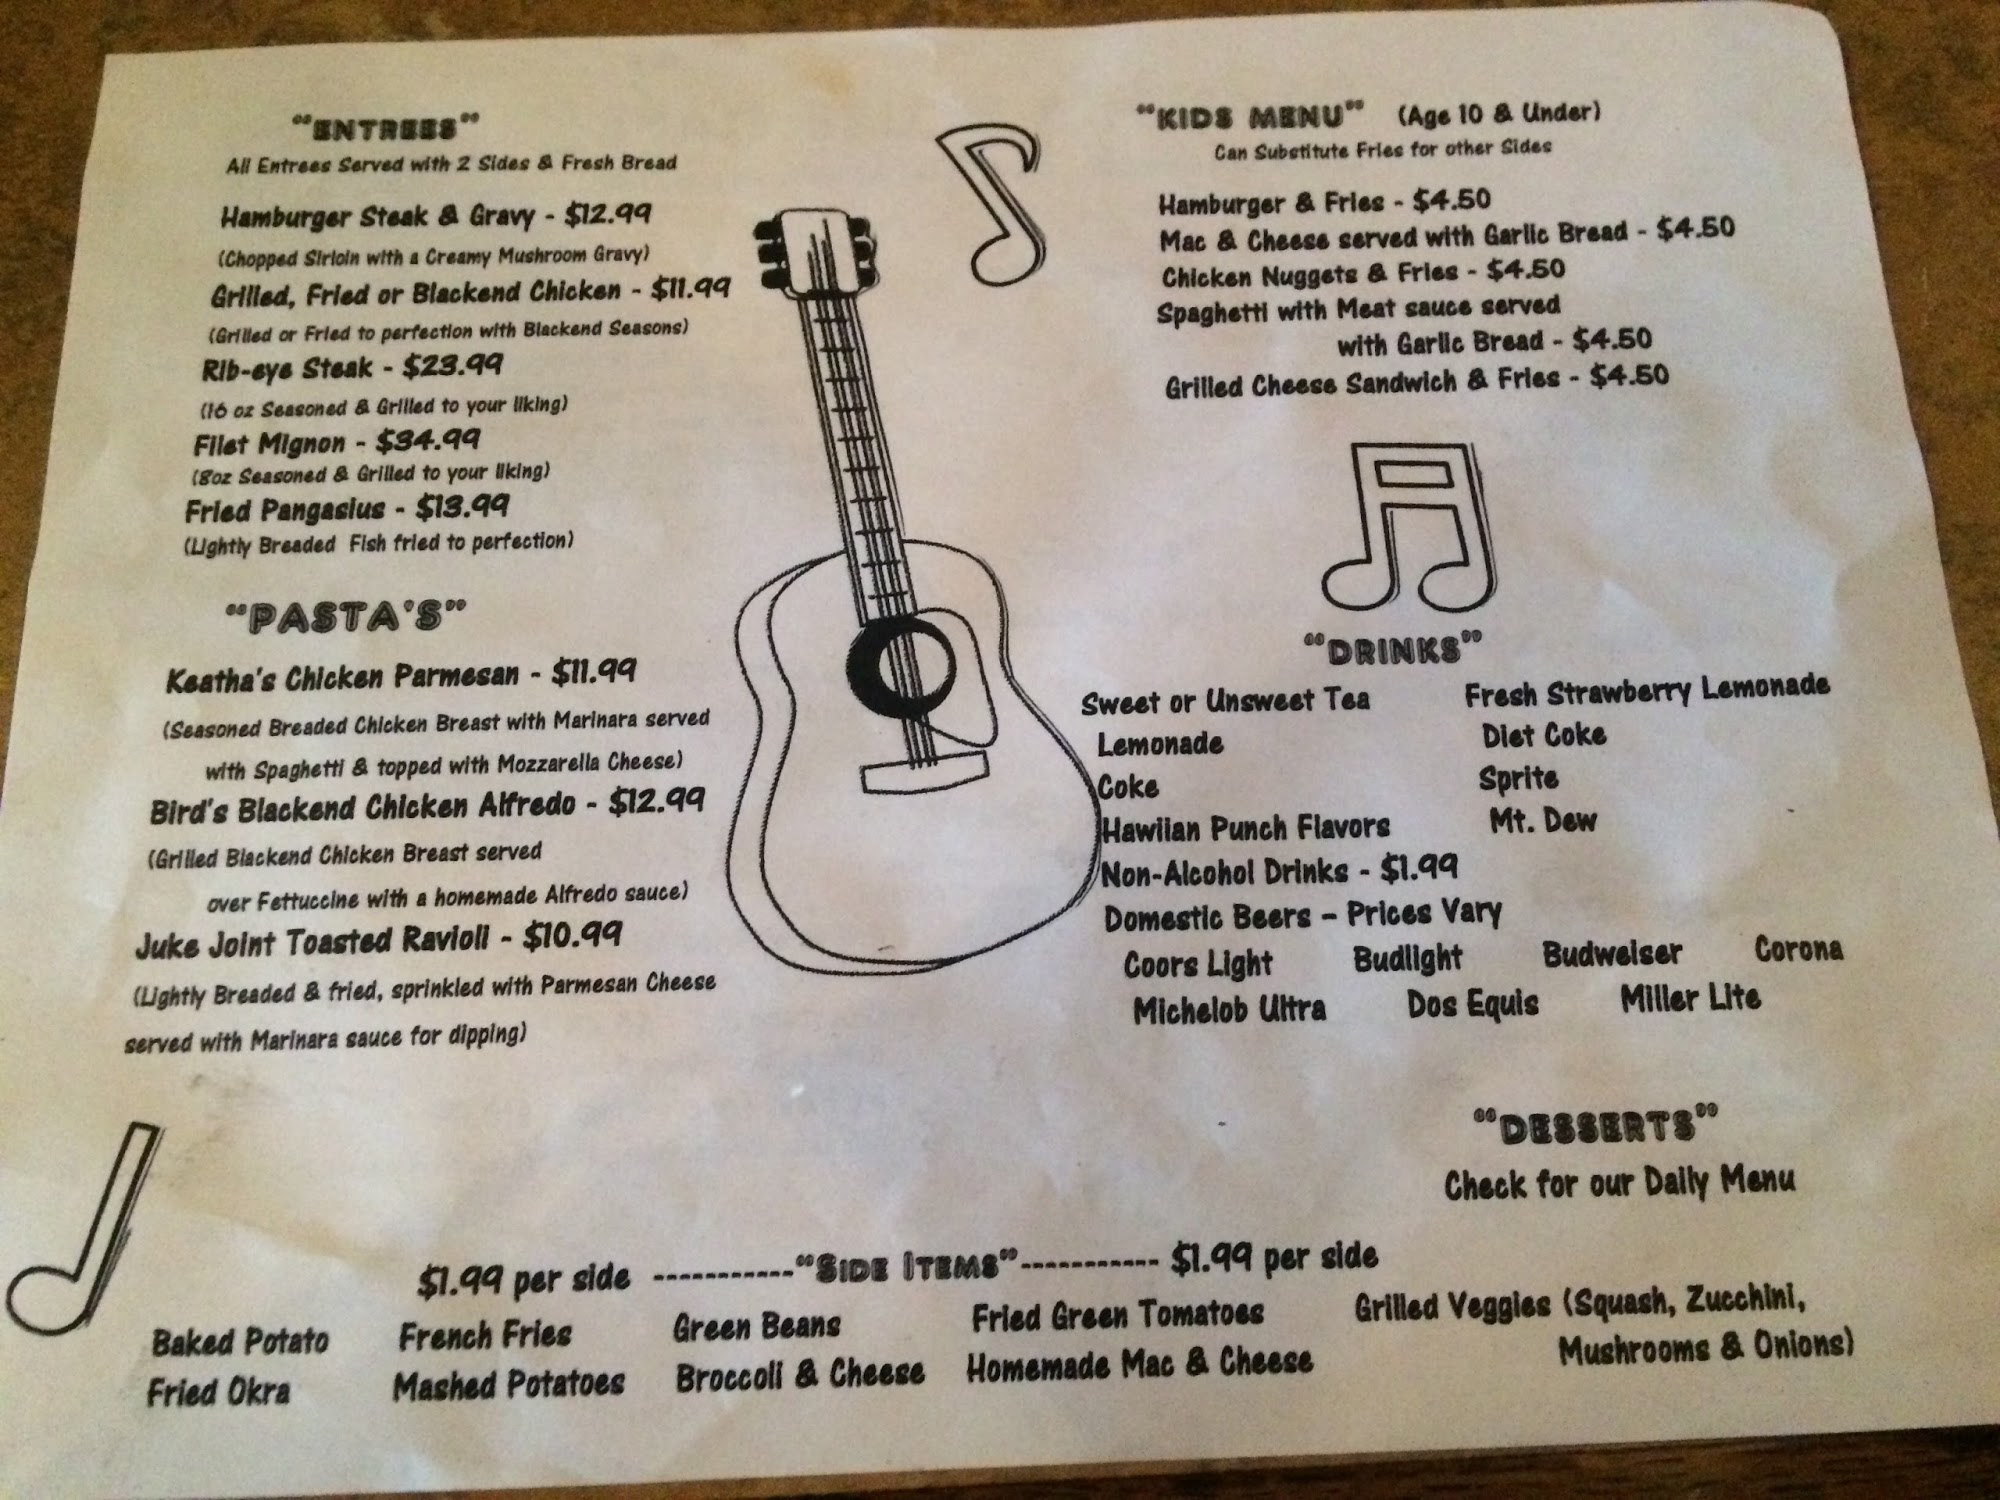 "ENTREES"
All Entrees Served with 2 Sides & Fresh Bread
Hamburger Steak & Gravy - $12.99
(Chopped Sirloin with a Creamy Mushroom Gravy)
Grilled, Fried or Blackend Chicken - $11.99
(Grilled or Fried to perfection with Blackend Seasons)
Rib-eye Steak - $23.99
(16 oz Seasoned & Grilled to your liking)
Filet Mignon - $34.99
(8oz Seasoned & Grilled to your liking)
Fried Pangasius - $13.99
(Lightly Breaded Fish fried to perfection)
"PASTA'S"
Keatha's Chicken Parmesan - $11.99
(Seasoned Breaded Chicken Breast with Marinara served
with Spaghetti & topped with Mozzarella Cheese)
Bird's Blackend Chicken Alfredo - $12.99
(Grilled Blackend Chicken Breast served
over Fettuccine with a homemade Alfredo sauce)
Juke Joint Toasted Ravioli - $10.99
(Lightly Breaded & fried, sprinkled with Parmesan Cheese
served with Marinara sauce for dipping)
"KIDS MENU" (Age 10 & Under)
Can Substitute Fries for other Sides
Hamburger & Fries - $4.50
Mac & Cheese served with Garlic Bread - $4.50
Chicken Nuggets & Fries - $4.50
Spaghetti with Meat sauce served
with Garlic Bread - $4.50
Grilled Cheese Sandwich & Fries - $4.50
"DRINKS"
Sweet or Unsweet Tea Fresh Strawberry Lemonade
Lemonade Diet Coke
Coke Sprite
Hawiian Punch Flavors Mt. Dew
Non-Alcohol Drinks - $1.99
Domestic Beers – Prices Vary
Coors Light Budlight Budweiser Corona
Michelob Ultra Dos Equis Miller Lite
"DESSERTS"
Check for our Daily Menu
$1.99 per side -----------"SIDE ITEMS"----------- $1.99 per side
Baked Potato French Fries Green Beans Fried Green Tomatoes Grilled Veggies (Squash, Zucchini,
Mushrooms & Onions)
Fried Okra Mashed Potatoes Broccoli & Cheese Homemade Mac & Cheese